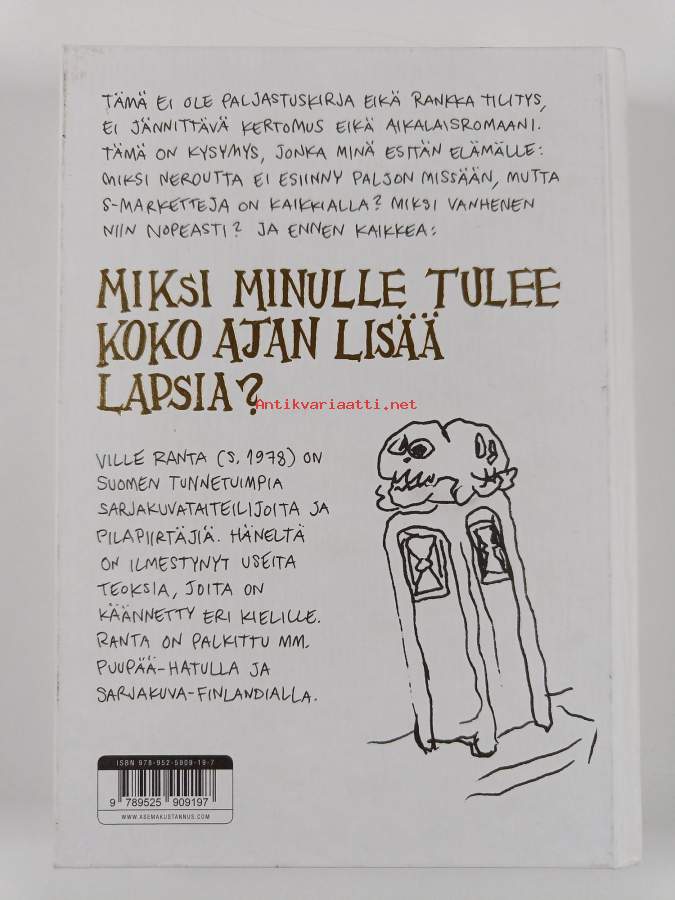 TÄMÄ EI OLE PALJASTUSKIRJA EIKÄ RANKKA TILITYS,
EI JÄNNITTÄVÄ KERTOMUS EIKÄ AIKALAISROMAANI.
TÄMÄ ON KYSYMYS, JONKA MINÄ ESITÄN ELÄMÄLLE:
MIKSI NEROUTTA EI ESIINNY PALJON MISSÄÄN, MUTTA
S-MARKETTEJA ON KAIKKIALLA? MIKSI VANHENEN
NIIN NOPEASTI? JA ENNEN KAIKKEA:
MIKSI MINULLE TULEE
KOKO AJAN LISÄÄ
LAPSIA?
Antikvariaatti.net
VILLE RANTA (S. 1978) ON
SUOMEN TUNNETUIMPIA
SARJAKUVATAITEILIJOITA JA
PILAPIIRTÄJIÄ. HÄNELTÄ
ON ILMESTYNYT USEITA
TEOKSIA, JOITA ON
KÄÄNNETTY ERI KIELILLE.
RANTA ON PALKITTU MM.
PUUPÄÄ-HATULLA JA
SARJAKUVA-FINLANDIALLA.
ISBN 978-952-5909-19-7
9 789525 909197
WWW.ASEMAKUSTANNUS.COM